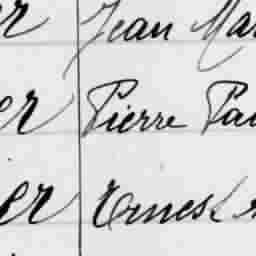 er Jean Mar
er Pierre Pau
er Ernest